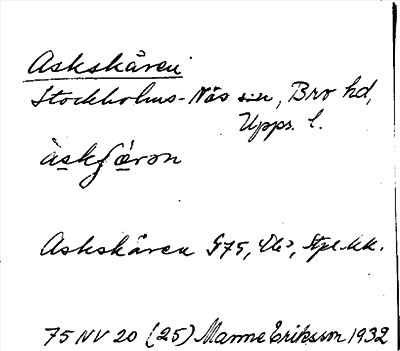 Askskären
Stockholms-Näs sn, Bro hd,
Upps. l.
àskʃæ̀rən
Askskären G75,
75 NV 20 (25) Manne Eriksson 1932